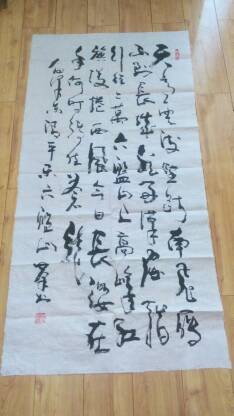 天高云淡望断南飞雁
不到长城非好汉屈指
行程二万六盘山上高峰红
旗漫卷西风今日长缨在
手何时缚住苍龙
毛泽东清平乐六盘山